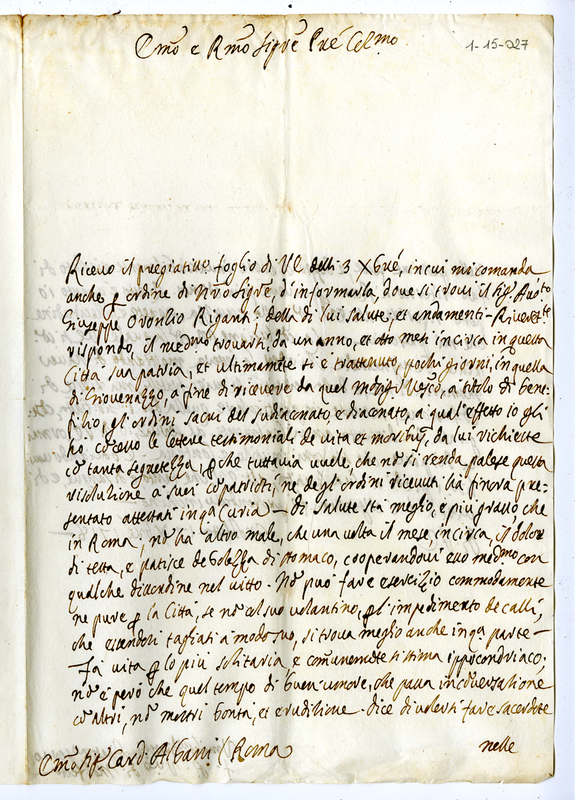 Emo e Rmo Sigre Pre Colmo
1-15-027
Ricevo il pregiatmo foglio di VE delli 3 Xbre, in cui mi comanda
anche p ordine di Nro Sigre, d'informarla, dove si trovi il Sigr
Giuseppe Oronlio Riganti, della di lui salute, et andamenti - Riverte
rispondo, il medmo trovarsi, da un anno, et otto mesi incirca in questa
Città sua patria, et ultimamte si è trattenuto, pochi giorni, in quella
di Giovenazzo, a fine di ricevere da quel Monsigr Vesco, a titolo di bene-
ficio, gl'ordini sacri del sudiaconato, e diaconato, a qual'effetto io gli
hò cocesso le lettere testimoniali de vita et moribus, da lui richieste
cò tanta segretezza, p che tuttavia vuole, che nò si renda palese questa
risoluzione a suoi copatrioti, ne degl'ordini ricevuti hà finora pre-
sentato attestati in qa Curia - di salute stà meglio, e più grasso che
in Roma, nò hà altro male, che una volta il mese, in circa, il dolore
di testa, e patisce debolezza di stomaco, cooperandovi esso medmo con
qualche disordine nel vitto - Nò può fare esercizio commodamente
ne pure p la Città, se nò col suo volantino, p l'impedimento de calli,
che essendosi tagliati a modo suo, si trova meglio anche in qa parte -
Fà vita p lo più solitaria e comunemete si stima ippocondriaco;
nò è però che quel tempo di buon umore, che passa in coversatione
cò altri, nò mostri bontà, et erudizione - dice di volersi fare sacerdote
nelle
Emo Sigr Card. Albani / Roma